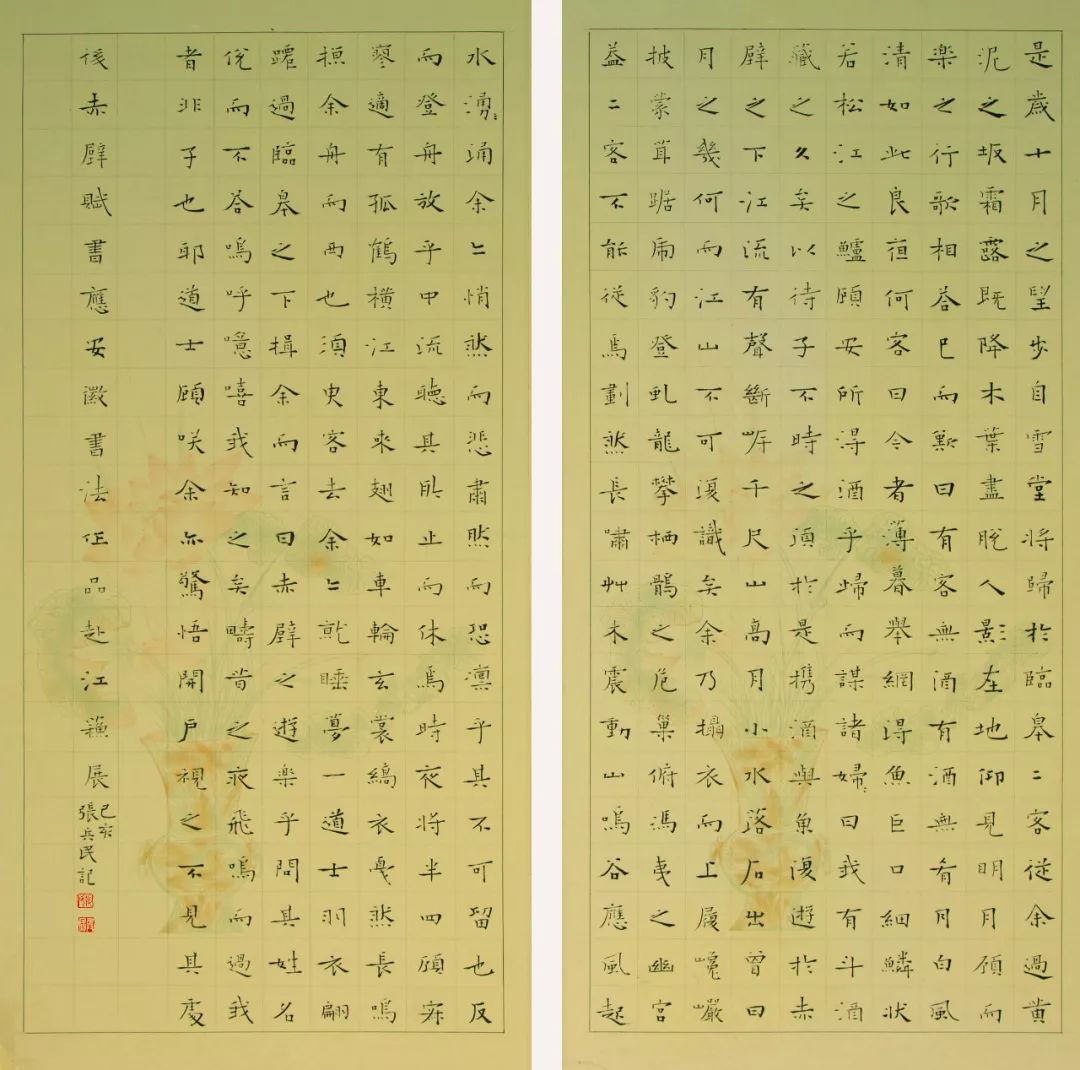 是歲十月之望步自雪堂將歸於臨皋二客從余過黃
泥之坂霜露既降木葉盡脫人影在地仰見明月顧而
樂之行歌相答已而歎曰有客無酒有酒無肴月白風
清如此良夜何客曰今者薄暮舉網得魚巨口細鱗狀
若松江之鱸顧安所得酒乎歸而謀諸婦〻曰我有斗酒
藏之久矣以待子不時之須於是携酒與魚復遊於赤
壁之下江流有聲斷岸千尺山高月小水落石出曾日
月之幾何而江山不可復識矣余乃攝衣而上履巉巖
披蒙茸踞虎豹登虬龍攀栖鶻之危巢俯馮夷之幽宮
蓋二客不能從焉劃然長嘯艸木震動山鳴谷應風起
水湧〻涌余〻悄然而悲肅然而恐凛乎其不可留也反
而登舟放乎中流聽其所止而休焉時夜將半四顧寂
寥適有孤鶴橫江東來翅如車輪玄裳縞衣戛然長鳴
掠余舟而西也須臾客去余〻就睡夢一道士羽衣翩
躚過臨皋之下揖余而言曰赤壁之遊樂乎問其姓名
俛而不答嗚呼噫嘻我知之矣疇昔之夜飛鳴而過我
者非子也耶道士顧咲余亦驚悟開戶視之不見其處
後赤壁賦書應安徽書法作品赴江蘇展
己亥
張兵民記